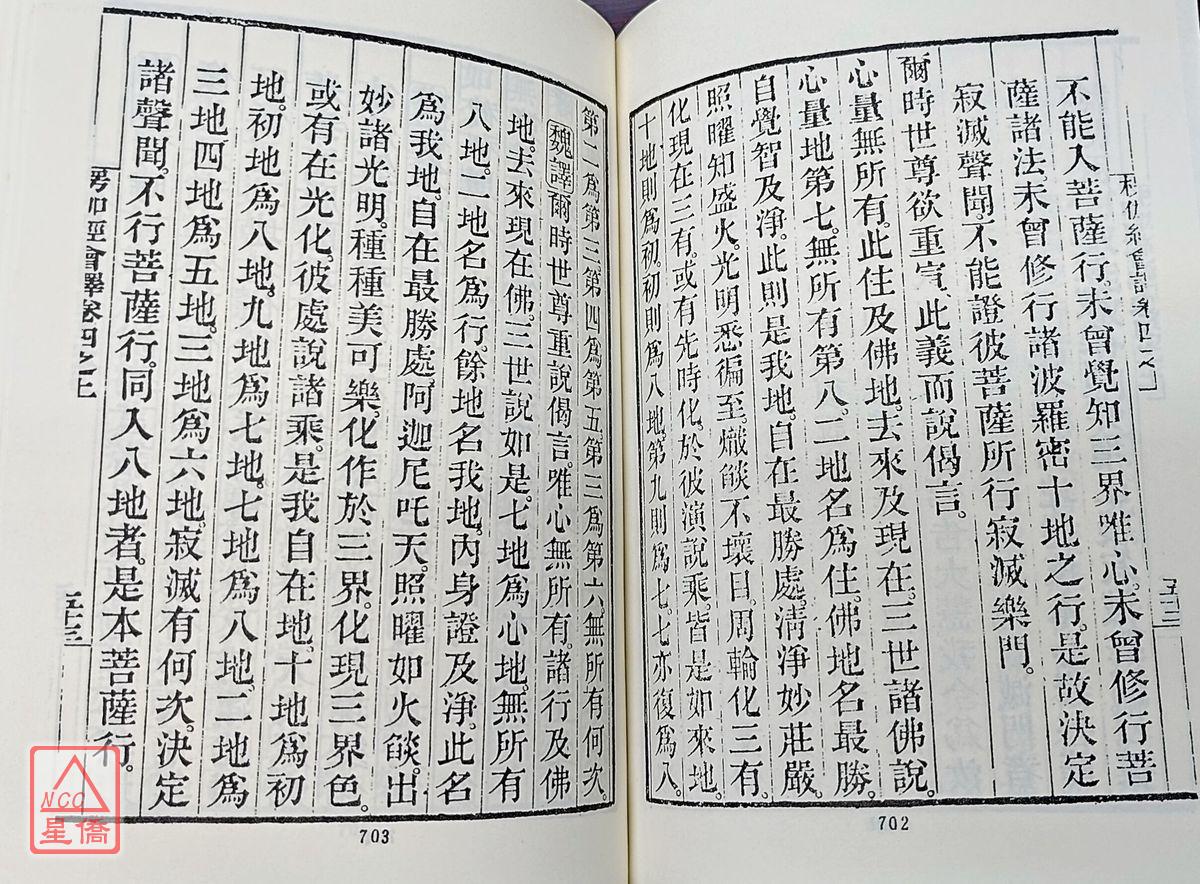 不能入菩薩行。未曾覺知三界唯心。未曾修行菩
薩諸法。未曾修行諸波羅密十地之行。是故決定
寂滅聲聞。不能證彼菩薩所行寂滅樂門。
爾時世尊欲重宣此義而說偈言。
心量無所有。此住及佛地。去來及現在。三世諸佛說。
心量地第七。無所有第八。二地名爲住。佛地名最勝。
自覺智及淨。此則是我地。自在最勝處。清淨妙莊嚴。
照曜如盛火。光明悉徧至。熾燄不壞目。周輪化三有。
化現在三有。或有先時化。於彼演說乘。皆是如來地。
十地則爲初。初則爲八地。第九則爲七。七亦復爲八。
702
第二爲第三。第四爲第五。第三爲第六。無所有何次。
魏譯爾時世尊重說偈言。唯心無所有。諸行及佛
地。去來現在佛。三世說如是。七地爲心地。無所有
八地。二地名爲行。餘地名我地。內身證及淨。此名
爲我地。自在最勝處。阿迦尼吒天。照曜如火燄。出
妙諸光明。種種美可樂。化作於三界。化現三界色。
或有在光化。彼處說諸乘。是我自在地。十地爲初
地。初地爲八地。九地爲七地。七地爲八地。二地爲
三地。四地爲五地。三地爲六地。寂滅有何次。決定
諸聲聞。不行菩薩行。同入八地者。是本菩薩行。
楞伽經會譯卷四之上
五十三
703
NCC
星僑